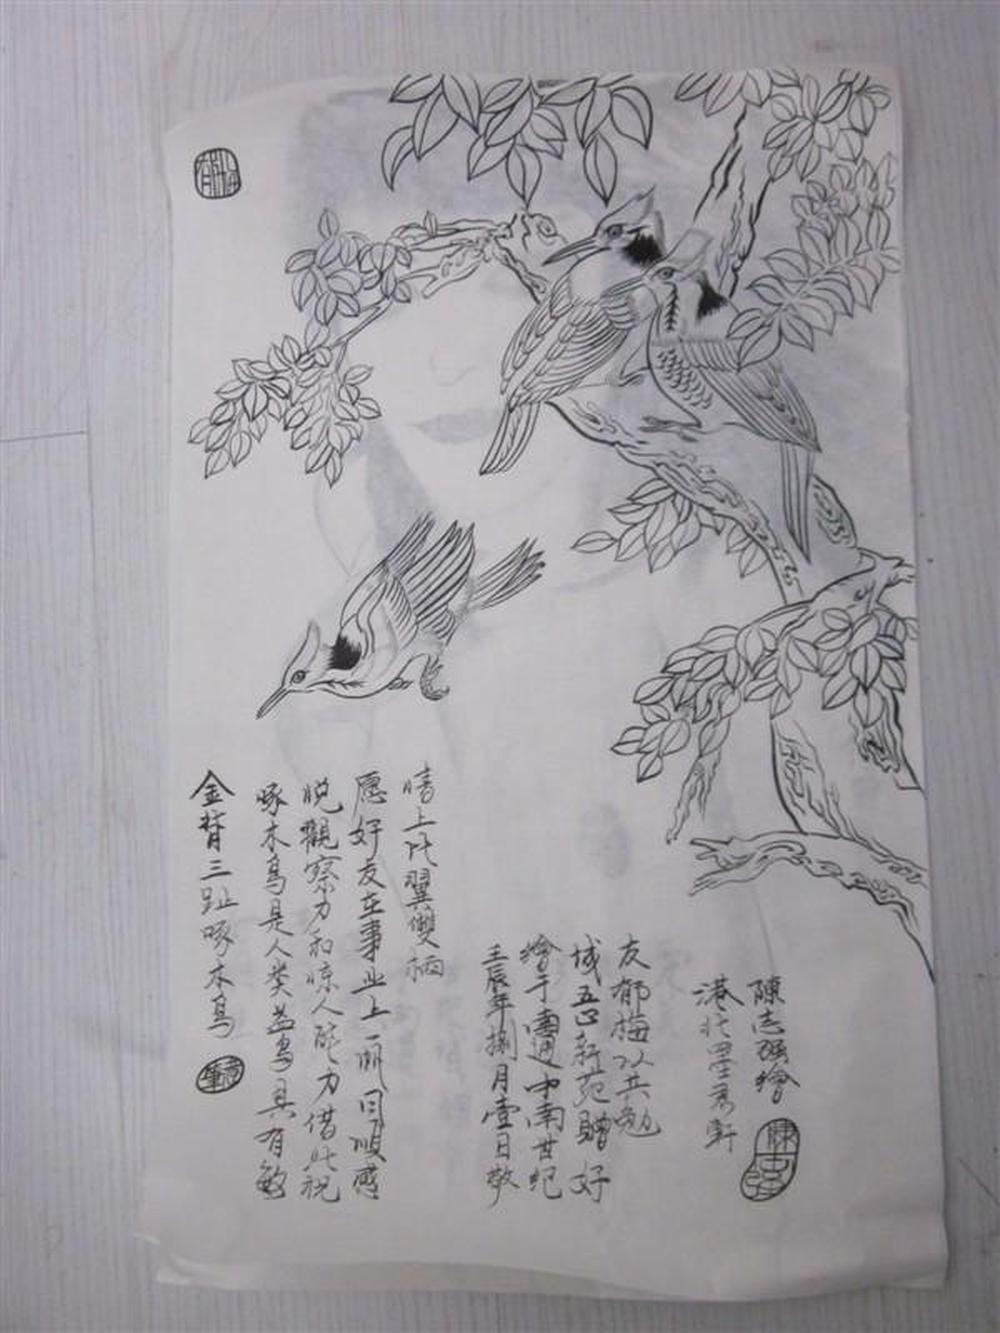 金背三趾啄木鸟
啄木鸟是人类益鸟具有敏
觀察力和惊人听力借此祝
愿好友在事业上一帆风顺感
情上比翼雙栖
壬辰年捌月壹日敬
繪于南通中南世纪
城新苑贈好
友郁梅以共勉
港北墨秀軒
陳志强繪
陳志强